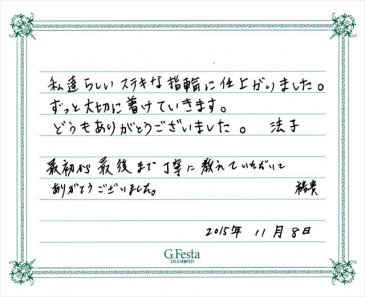 私達らしいステキな指輪に仕上がりました。
ずっと大切に着けていきます。
どうもありがとうございました。 法子
最初から最後まで丁寧に教えていただいて
ありがとうございました。 裕貴
2015年 11月 8日
G.Festa
DIAMOND